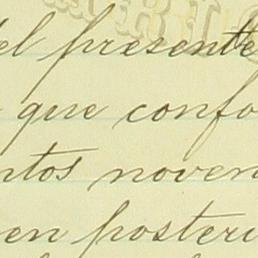 del presente
que confo
ntos noven
en posteri